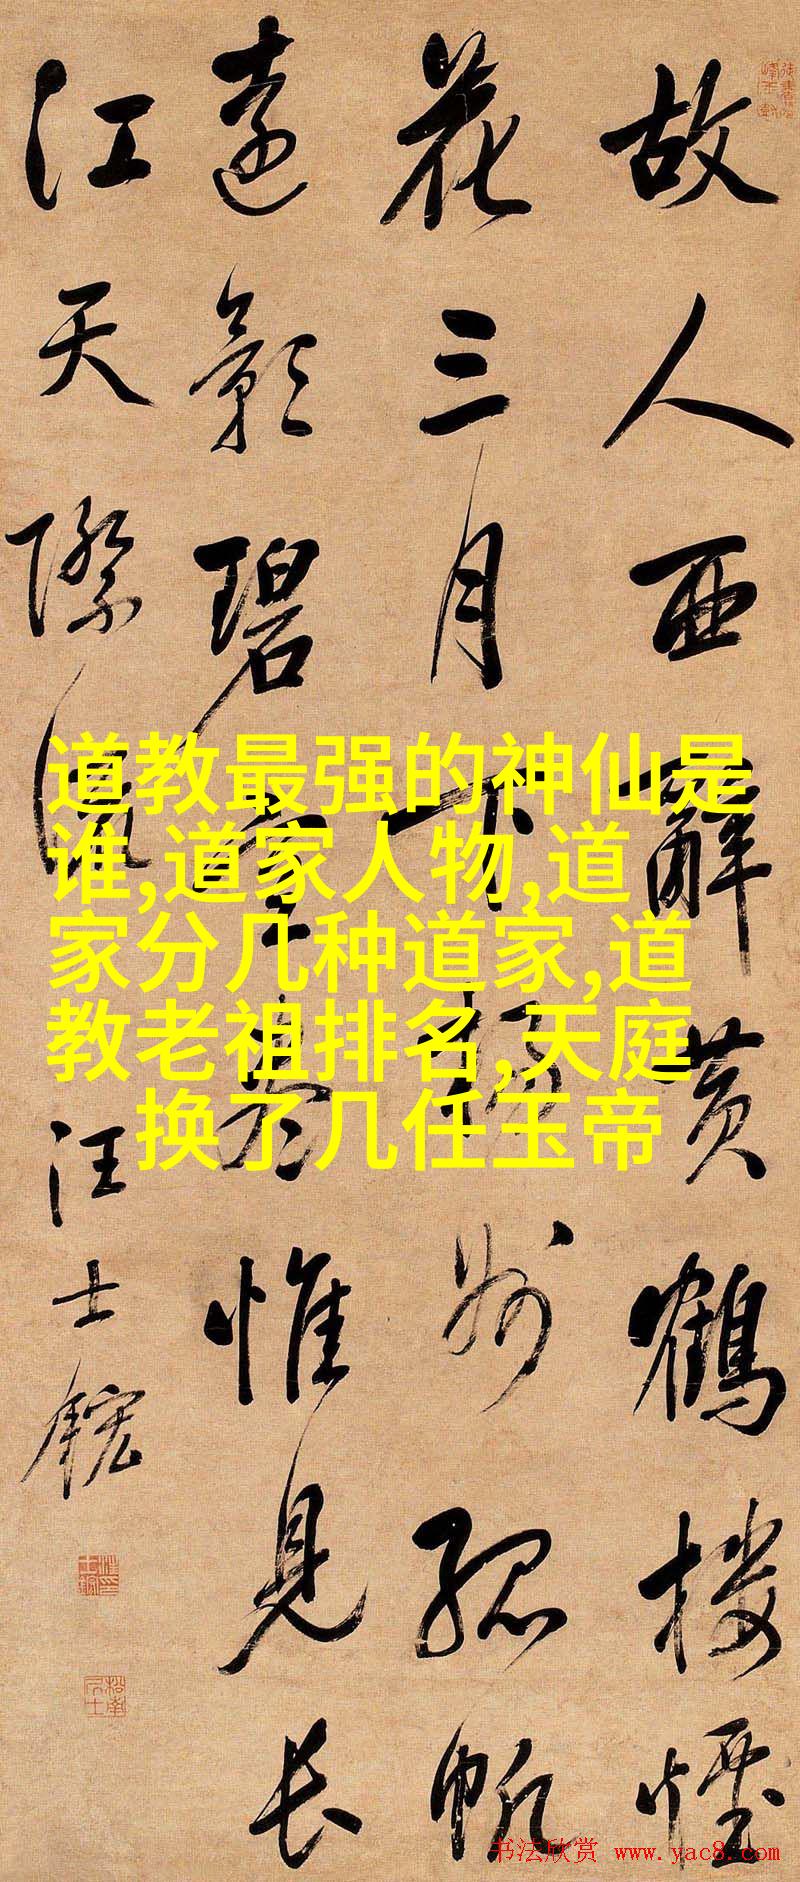 故人西辞黄鹤楼烟
花三月下扬州孤帆
远影碧空尽惟见长
江天际流 汪士鋐
道教最强的神仙是
谁,道家人物,道
家分几种道家,道
教老祖排名,天庭
换了几任玉帝
书法欣赏 www.yac8.com